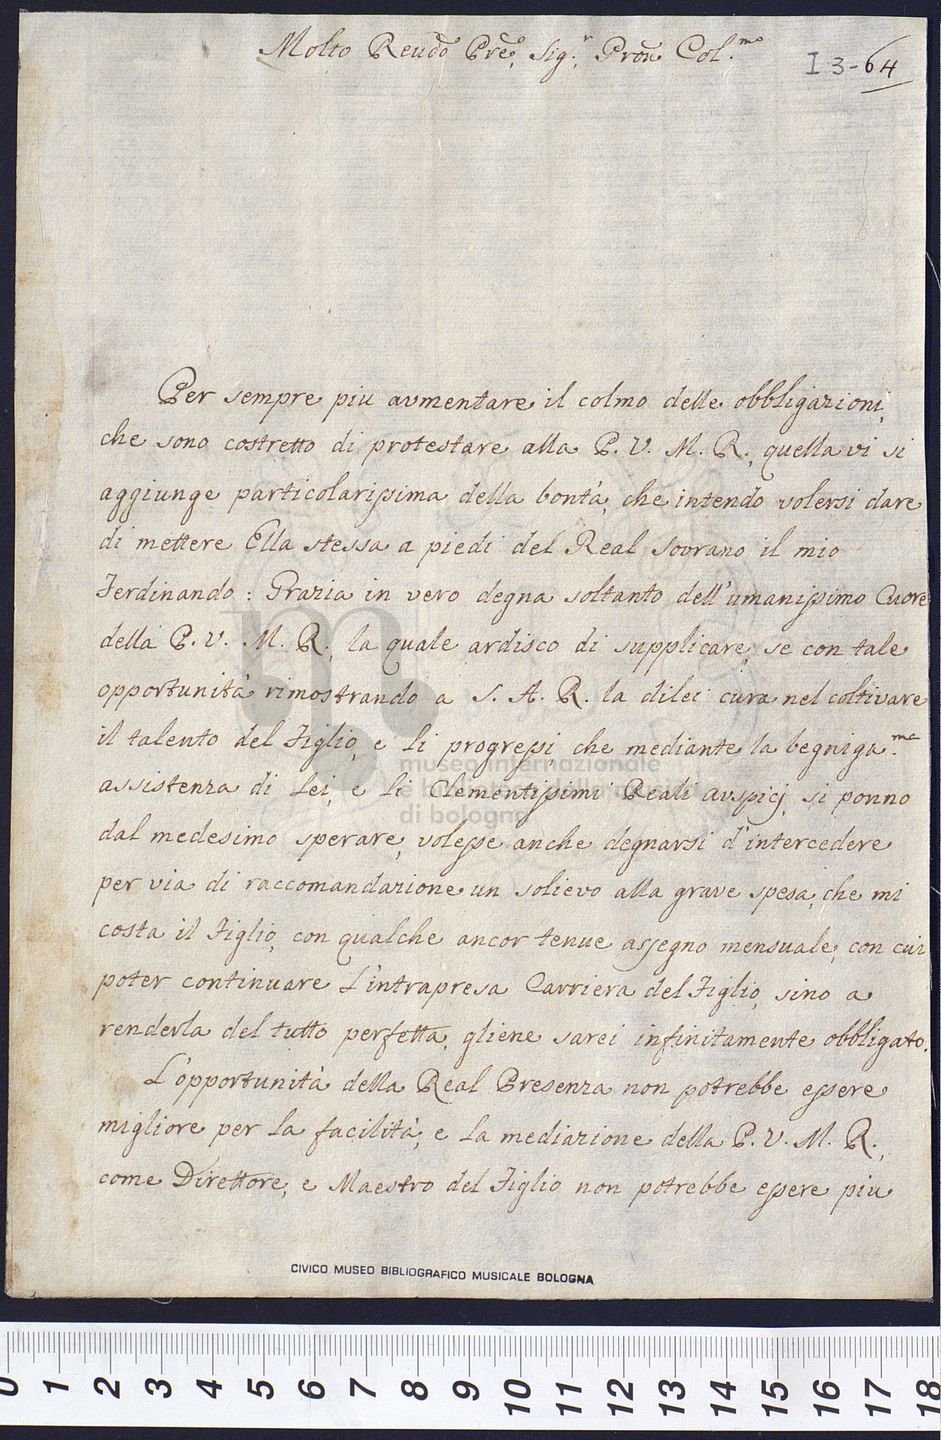 Molto Reudo Pre, Sig.r Prōn Col.mo
I 3-64
Per sempre piu avmentare il colmo delle obbligazioni,
che sono costretto di protestare alla P. V. M. R., quella vi si
aggiunge particolarissima della bontà, che intendo volersi dare
di mettere Ella stessa a piedi del Real Sovrano il mio
Ferdinando: Grazia in vero degna soltanto dell'umanissimo Cuore
della P. V. M. R., la quale ardisco di supplicare, se con tale
opportunità rimostrando a S. A. R. la dilei cura nel coltivare
il talento del Figlio, e li progressi, che mediante la begniga.ma
assistenza di Lei, e li Clementissimi Reali avspicj, si ponno
dal medesimo sperare, volesse anche degnarsi d'intercedere
per via di raccomandazione un solievo alla grave spesa, che mi
costa il Figlio, con qualche ancor tenue assegno mensuale, con cui
poter continuare L'intrapresa Carriera del Figlio, sino a
renderla del tutto perfetta, gliene sarei infinitamente obbligato.
L'opportunità della Real Presenza non potrebbe essere
migliore per la facilità, e la mediazione della P. V. M. R.,
come Direttore, e Maestro del Figlio non potrebbe essere piu
museo internazionale
e biblioteca della musica
di bologna
CIVICO MUSEO BIBLIOGRAFICO MUSICALE BOLOGNA
0 1 2 3 4 5 6 7 8 9 10 11 12 13 14 15 16 17 18